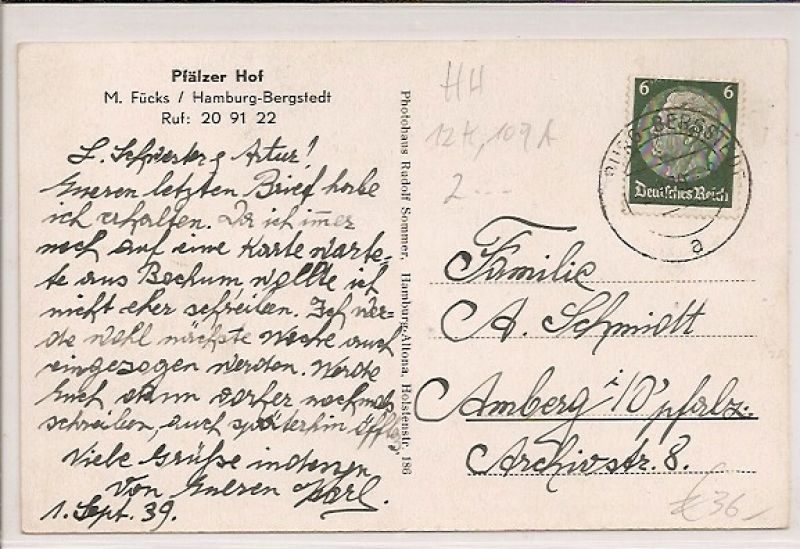 Pfälzer Hof
M. Fücks / Hamburg-Bergstedt
Ruf: 20 91 22
L. Schwester & Artur!
Eueren letzten Brief habe
ich erhalten. Da ich immer
noch auf eine Karte warte-
te aus Bochum wollte ich
nicht eher schreiben. Ich wer=
de wohl nächste Woche auch
eingezogen werden. Werde
Euch dann vorher nochmals
schreiben, auch späterhin öfters
Viele Grüße indessen
von Eueren Karl.
1. Sept. 39.
Photohaus Rudolf Sommer, Hamburg-Altona, Holstenstr. 186
HH
12 K, 109 A
2 ---
6 6
Deutsches Reich
BURG-BERGSTEDT
a
Familie
A. Schmidt
Amberg i/O'pfalz.
Archivstr. 8.
36,-